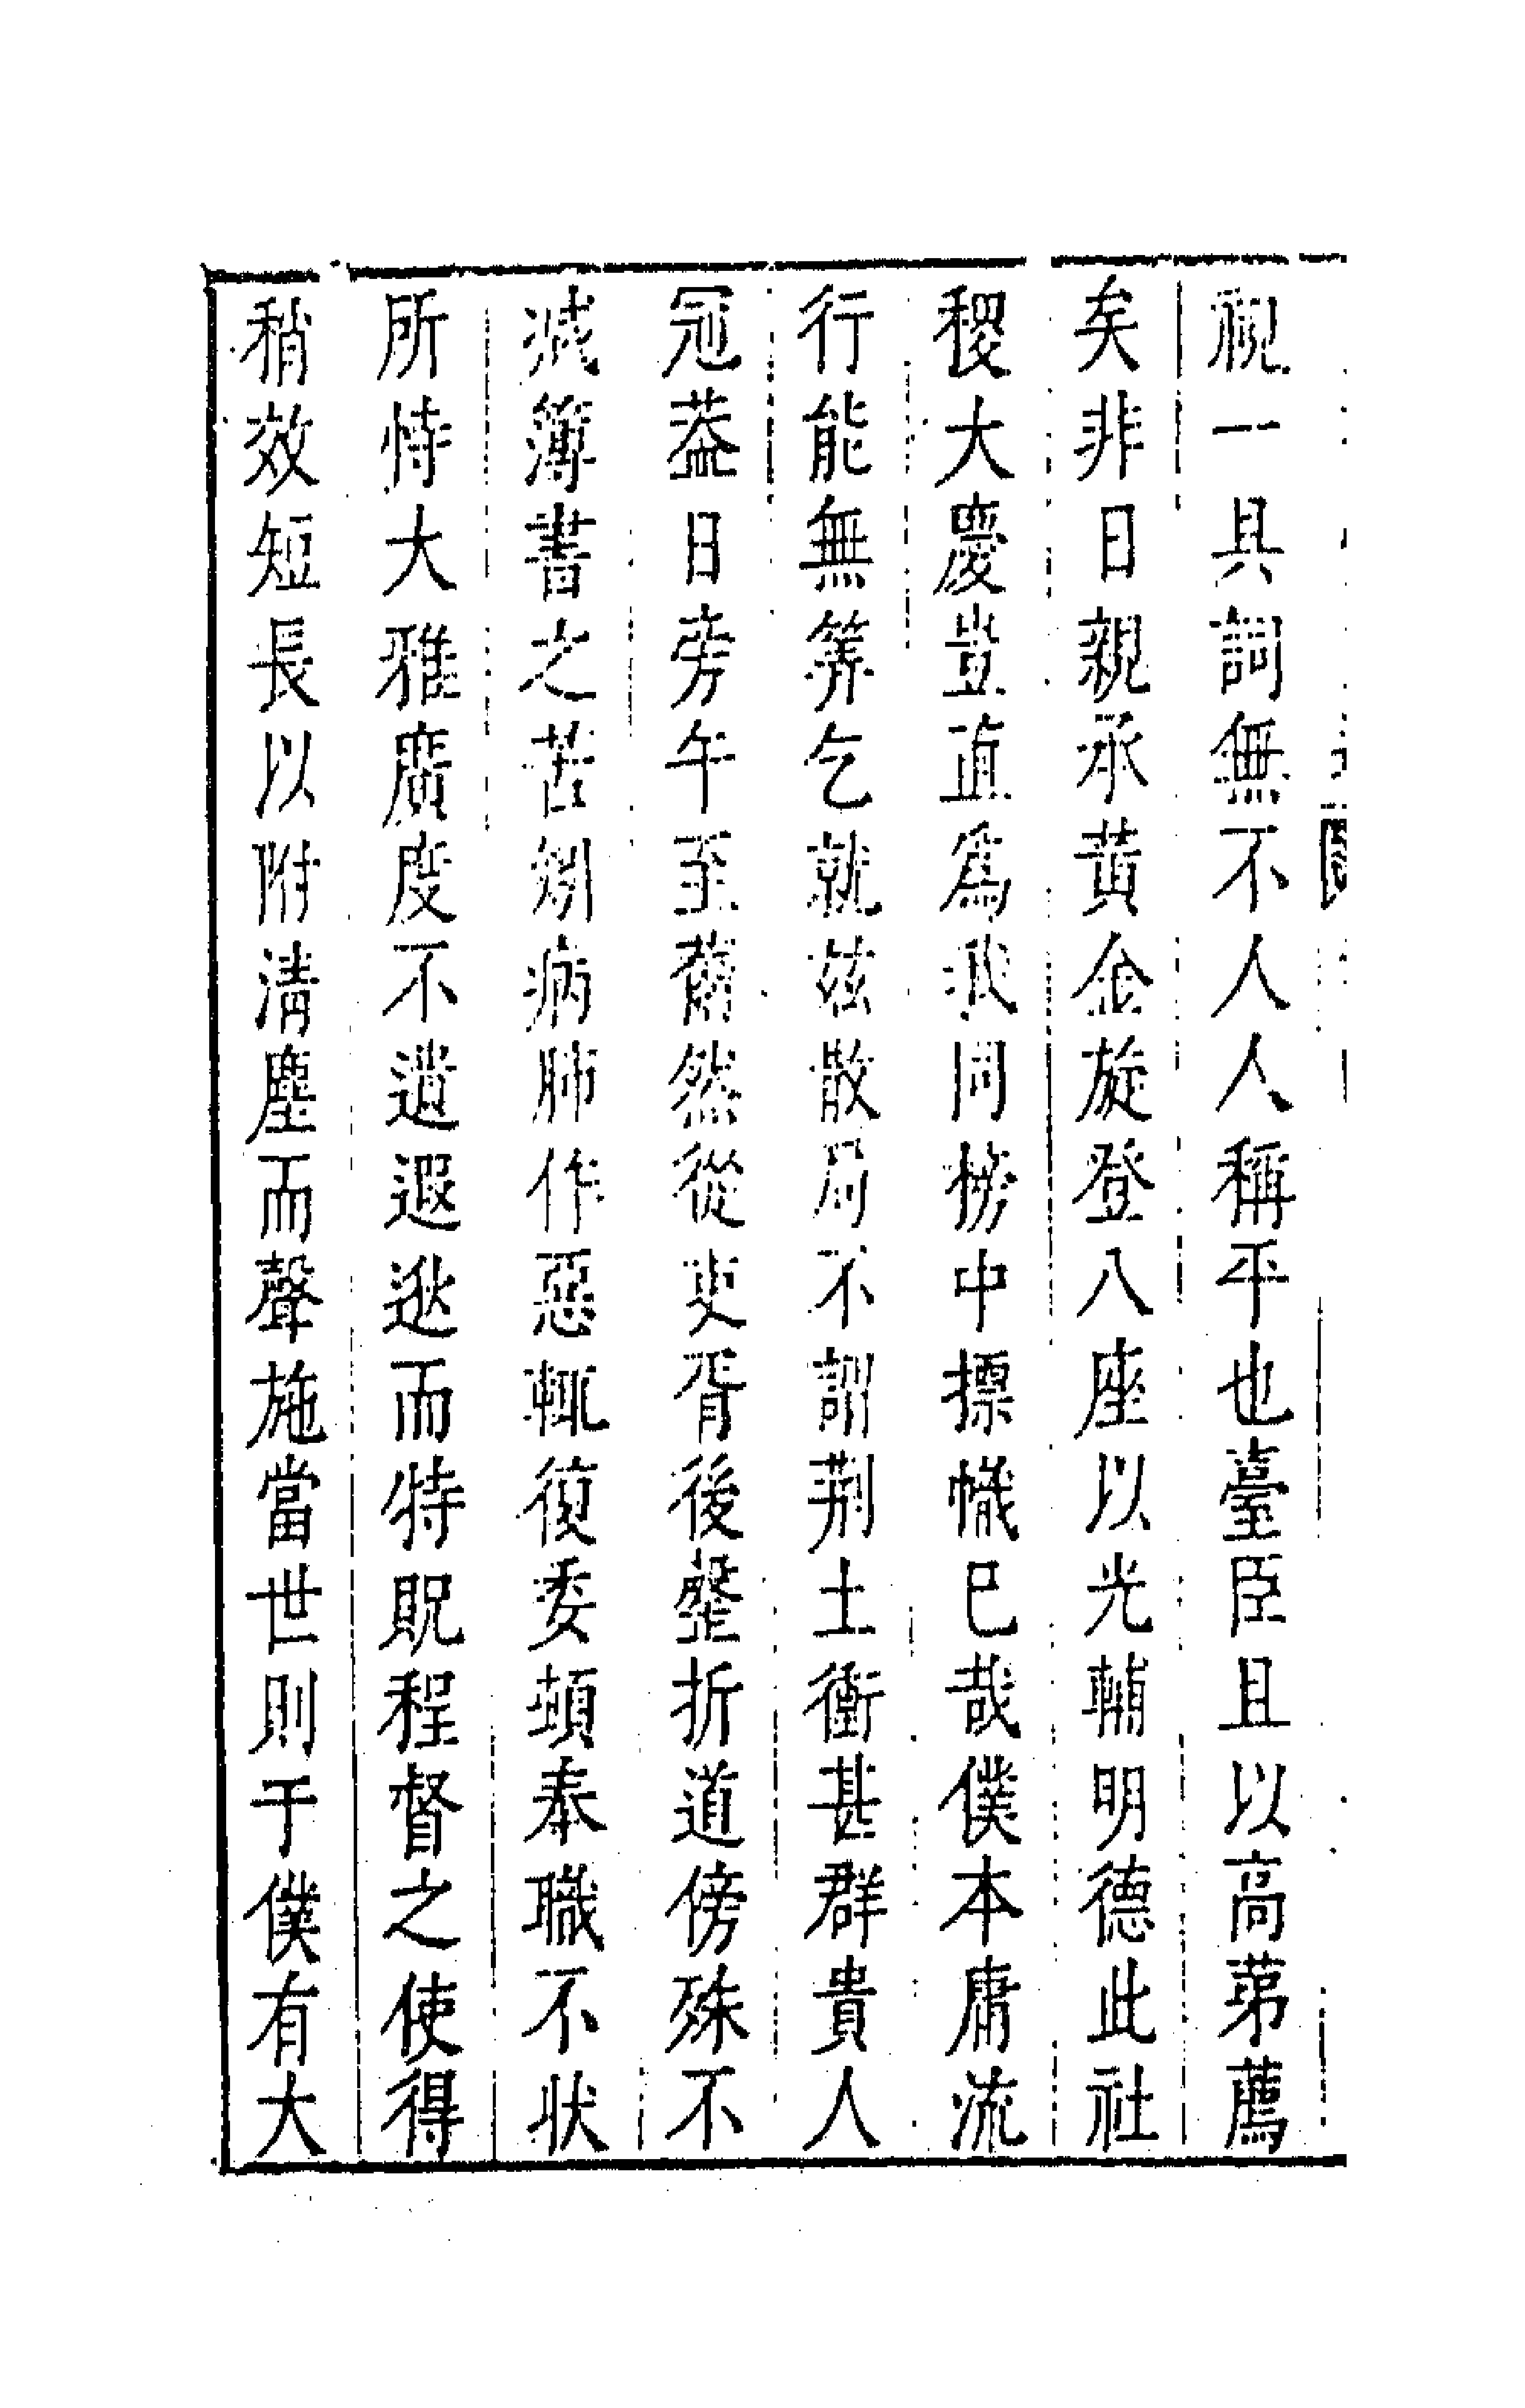 視一具詞無不人人稱平也臺臣且以高苐薦
矣非日親承黃金旋登八座以光輔明德此社
稷大慶豈直爲我同榜中摽幟已哉僕本庸流
行能無筭乞就兹散局不謂荆土衝甚群貴人
冠葢日旁午至舊然從吏胥後罄折道傍殊不
减簿書之苦矧病肺作惡輒復委頓奉職不狀
所恃大雅廣度不遺遐逖而特貺程督之使得
稍效短長以附清塵而聲施當世則于僕有大